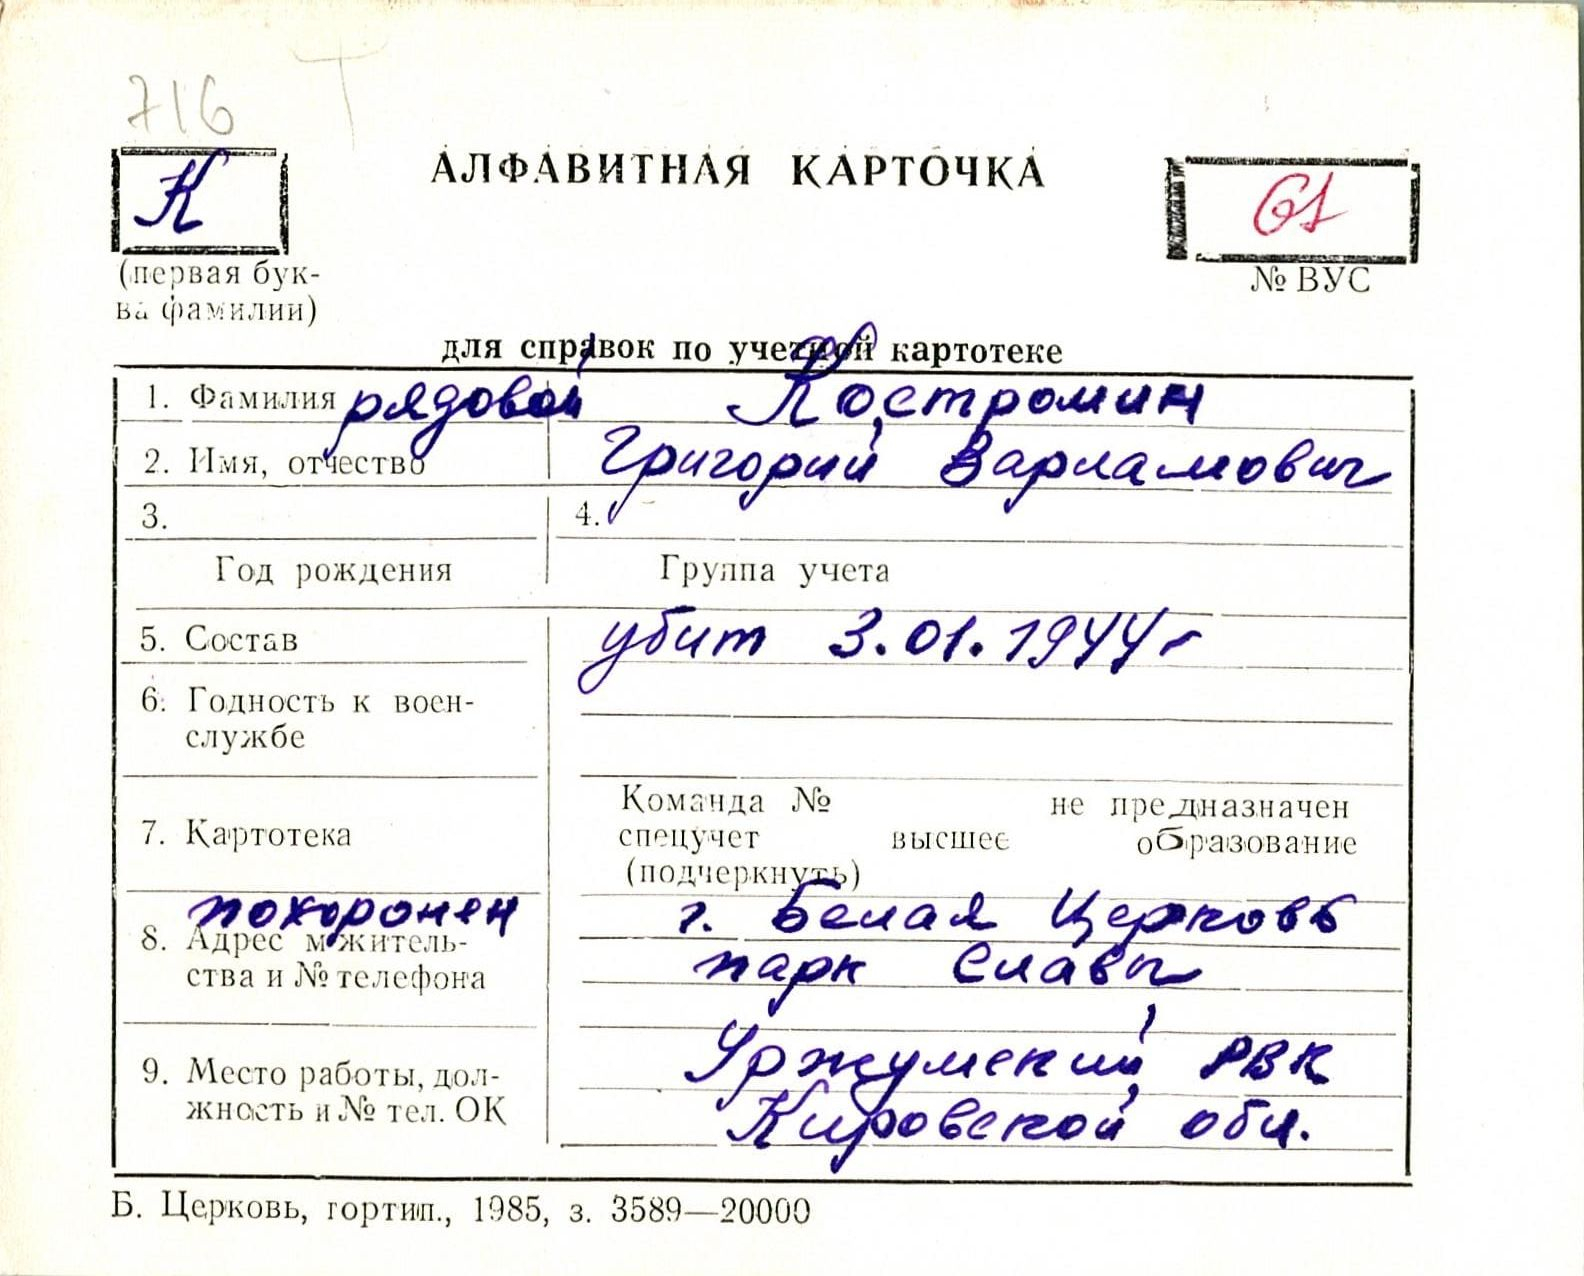 716 Т
К
АЛФАВИТНАЯ КАРТОЧКА
61
(первая бук-
ва фамилии)
№ ВУС
для справок по учетной картотеке
1. Фамилия рядовой Костромин
2. Имя, отчество Григорий Варламович
3. 4.
Год рождения Группа учета
5. Состав убит 3.01.1944г
6. Годность к воен-
службе
Команда № не предназначен
7. Картотека спецучет высшее образование
(подчеркнуть)
похоронен г. Белая Церковь
8. Адрес м/житель-
ства и № телефона парк Славы
9. Место работы, дол- Уржумский РВК
жность и № тел. ОК Кировской обл.
Б. Церковь, гортип., 1985, з. 3589—20000